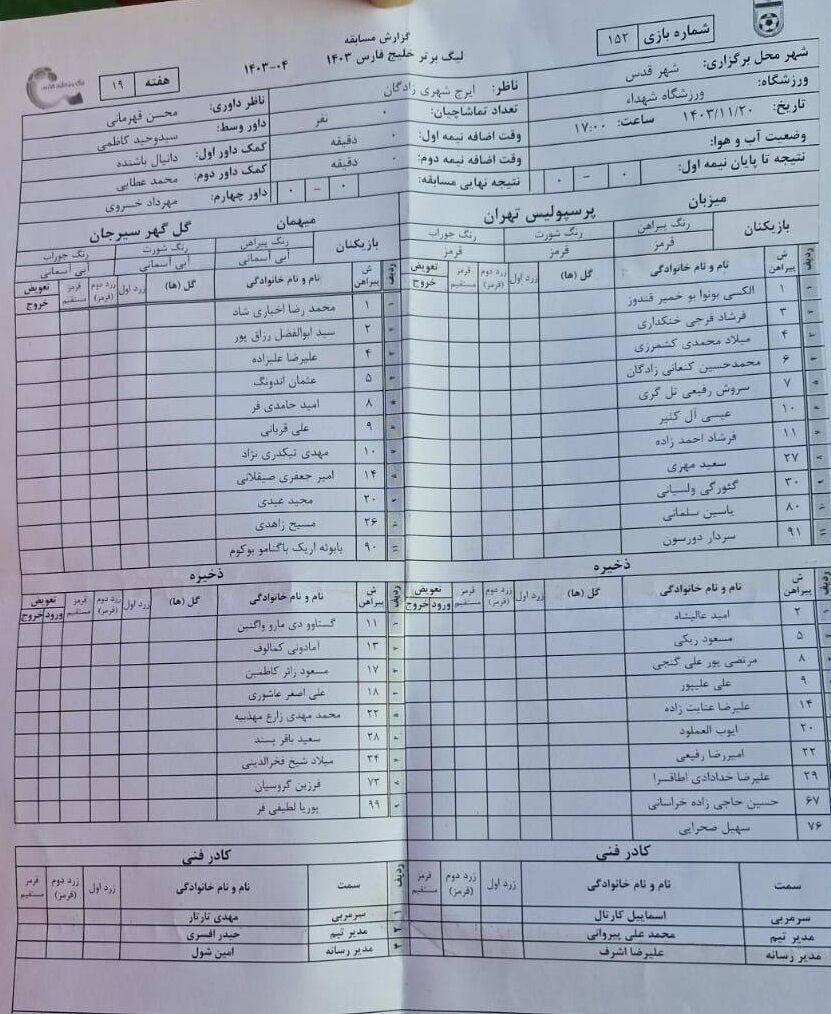 گزارش مسابقه
لیگ برتر خلیج فارس ۱۴۰۳ ۰۴-۱۴۰۳
شماره بازی ۱۵۲
هفته ۱۹
شهر محل برگزاری: شهر قدس
ورزشگاه: ورزشگاه شهداء
تاریخ: ۱۴۰۳/۱۱/۲۰ ساعت: ۱۷:۰۰
وضعیت آب و هوا:
نتیجه تا پایان نیمه اول: ۰ - ۰
ناظر: ایرج شهری زادگان
تعداد تماشاچیان: ۰ نفر
وقت اضافه نیمه اول: ۰ دقیقه
وقت اضافه نیمه دوم: ۰ دقیقه
نتیجه نهایی مسابقه: ۰ - ۰
ناظر داوری: محسن قهرمانی
داور وسط: سیدوحید کاظمی
کمک داور اول: دانیال باشنده
کمک داور دوم: محمد عطایی
داور چهارم: مهرداد خسروی
میزبان پرسپولیس تهران
بازیکنان رنگ پیراهن رنگ شورت رنگ جوراب
قرمز قرمز قرمز
ردیف ش پیراهن نام و نام خانوادگی گل (ها) زرد اول زرد دوم (قرمز) قرمز مستقیم تعویض خروج
۱ الکسی بونوا بو خمیر قندوز
۳ فرشاد فرجی خنکداری
۴ میلاد محمدی کشمرزی
۶ محمدحسین کنعانی زادگان
۷ سروش رفیعی تل گری
۱۰ عیسی آل کثیر
۱۱ فرشاد احمد زاده
۲۷ سعید مهری
۳۰ گئورگی ولسیانی
۸۰ یاسین سلمانی
۹۱ سردار دورسون
ذخیره
ردیف ش پیراهن نام و نام خانوادگی گل (ها) زرد اول زرد دوم (قرمز) قرمز مستقیم تعویض ورود خروج
۲ امید عالیشاه
۵ مسعود ریکی
۸ مرتضی پور علی گنجی
۹ علی علیپور
۱۴ علیرضا عنایت زاده
۲۰ ایوب العملود
۲۲ امیررضا رفیعی
۲۹ علیرضا خدادادی اطاقسرا
۶۷ حسین حاجی زاده خراسانی
۷۶ سهیل صحرایی
کادر فنی
سمت نام و نام خانوادگی زرد اول زرد دوم (قرمز) قرمز مستقیم
سرمربی اسماییل کارتال
مدیر تیم محمد علی پیروانی
مدیر رسانه علیرضا اشرف
میهمان گل گهر سیرجان
بازیکنان رنگ پیراهن رنگ شورت رنگ جوراب
آبی آسمانی آبی آسمانی آبی آسمانی
ردیف ش پیراهن نام و نام خانوادگی گل (ها) زرد اول زرد دوم (قرمز) قرمز مستقیم تعویض خروج
۱ محمد رضا اخباری شاد
۲ سید ابوالفضل رزاق پور
۴ علیرضا علیزاده
۵ عثمان اندونگ
۸ امید حامدی فر
۹ علی قربانی
۱۰ مهدی تیکدری نژاد
۱۴ امیر جعفری صیقلانی
۲۰ مجید عیدی
۲۶ مسیح زاهدی
۹۰ یابوئه اریک باگنامو بوکوم
ذخیره
ردیف ش پیراهن نام و نام خانوادگی گل (ها) زرد اول زرد دوم (قرمز) قرمز مستقیم تعویض ورود خروج
۱۱ گستاوو دی مارو واگنین
۱۳ آمادونی کمالوف
۱۷ مسعود زائر کاظمین
۱۸ علی اصغر عاشوری
۲۲ محمد مهدی زارع مهذبیه
۲۸ سعید باقر پسند
۳۴ میلاد شیخ فخرالدینی
۷۳ فرزین گروسیان
۹۹ پوریا لطیفی فر
کادر فنی
ردیف سمت نام و نام خانوادگی زرد اول زرد دوم (قرمز) قرمز مستقیم
۱ سرمربی مهدی تارتار
۲ مدیر تیم حیدر افسری
۳ مدیر رسانه امین شول